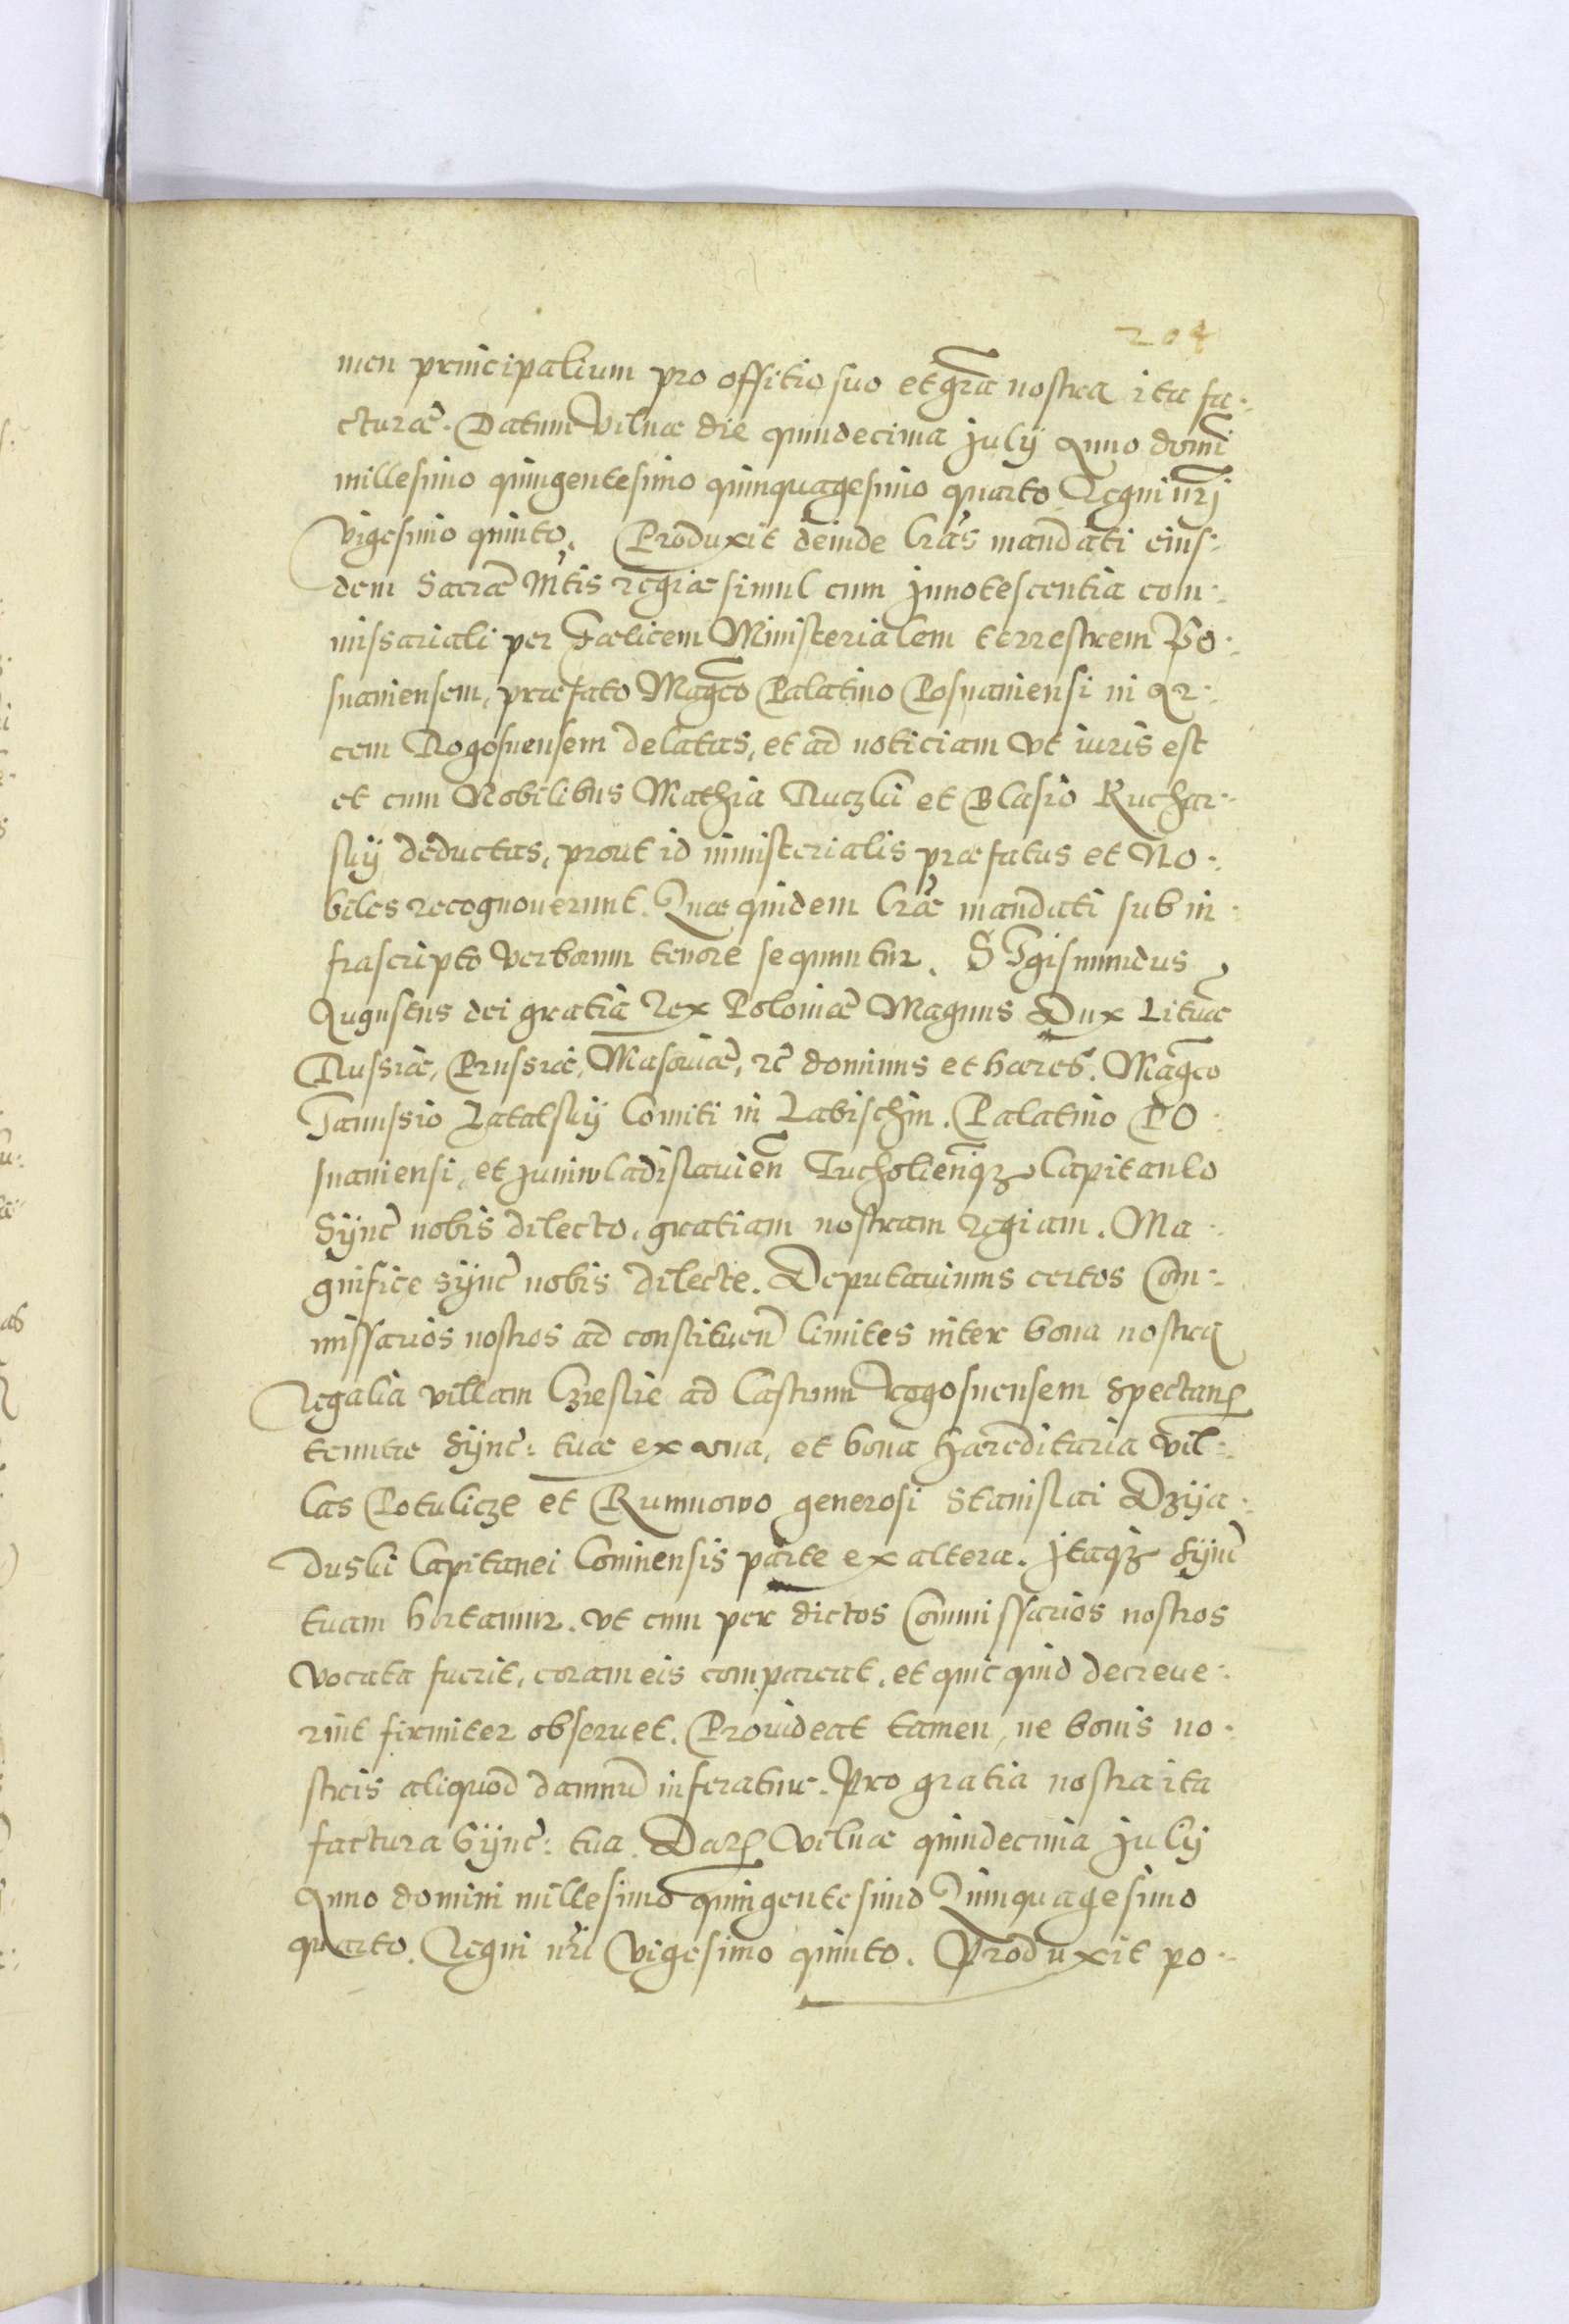 204
men principalium pro offitio suo et gra̅a nostra ita fa-
cturae. Datum Vilnae die quindecima July Anno domi̅
millesimo quingentesimo quinquagesimo quarto Regni nr̅j
vigesimo quinto. Produxit deinde Lr̅as mandati eius-
dem Sacrae Mt̅is regiae simul cum Innotescentia com-
missariali per Foelicem Ministerialem terrestrem Po-
snaniensem, praefato Mag̅co Palatino Posnaniensi in Ar-
cem Rogosnensem delatas, et ad noticiam ut iuris est
et cum Nobilibus Mathia Ruczki et Blasio Ruchar-
sky deductas, prout id ministerialis praefatus et No-
biles recognoverunt. Quae quidem Lr̅ae mandati sub in-
frascripto verborum tenore sequuntur. SIgismundus
Augustus dei gratia Rex Poloniae Magnus Dux Lituae
Russiae, Prussiae, Masoviae, rc̅ dominus et haeres. Mag̅co
Janussio Latalsky Comiti in Labischin. Palatino PO-
snaniensi, et Juniwladislavien̅ Tucholien̅qz Capitaneo
Synce̅ nobis dilecto, gratiam nostram regiam. Ma-
gnifice synce̅ nobis dilecte. Deputavimus certos Com-
missarios nostros ad constituen̅ limites inter bona nostra
Regalia villam ad Castrum Rogosnensem spectan̅
tenutae Sync̅: tuae ex una, et bona haereditaria vil-
las Potulicze et Runnowo generosi Stanislai Dzya-
duski Capitanei Coninensis parte ex altera. Itaqz Sync̅
tuam hortamur. ut cum per dictos Commissarios nostros
vocata fuerit, coram eis compareat, et quicquid decreve-
rint firmiter observet. Provideat tamen, ne bonis no-
stris aliquod damnu̅ inferatur. Pro gratia nostra ita
factura Sync̅: tua. Dat̅ Vilnae quindecima July
Anno domini millesimo quingentesimo Quinquagesimo
quarto. Regni nr̅i vigesimo quinto. Produxit po-